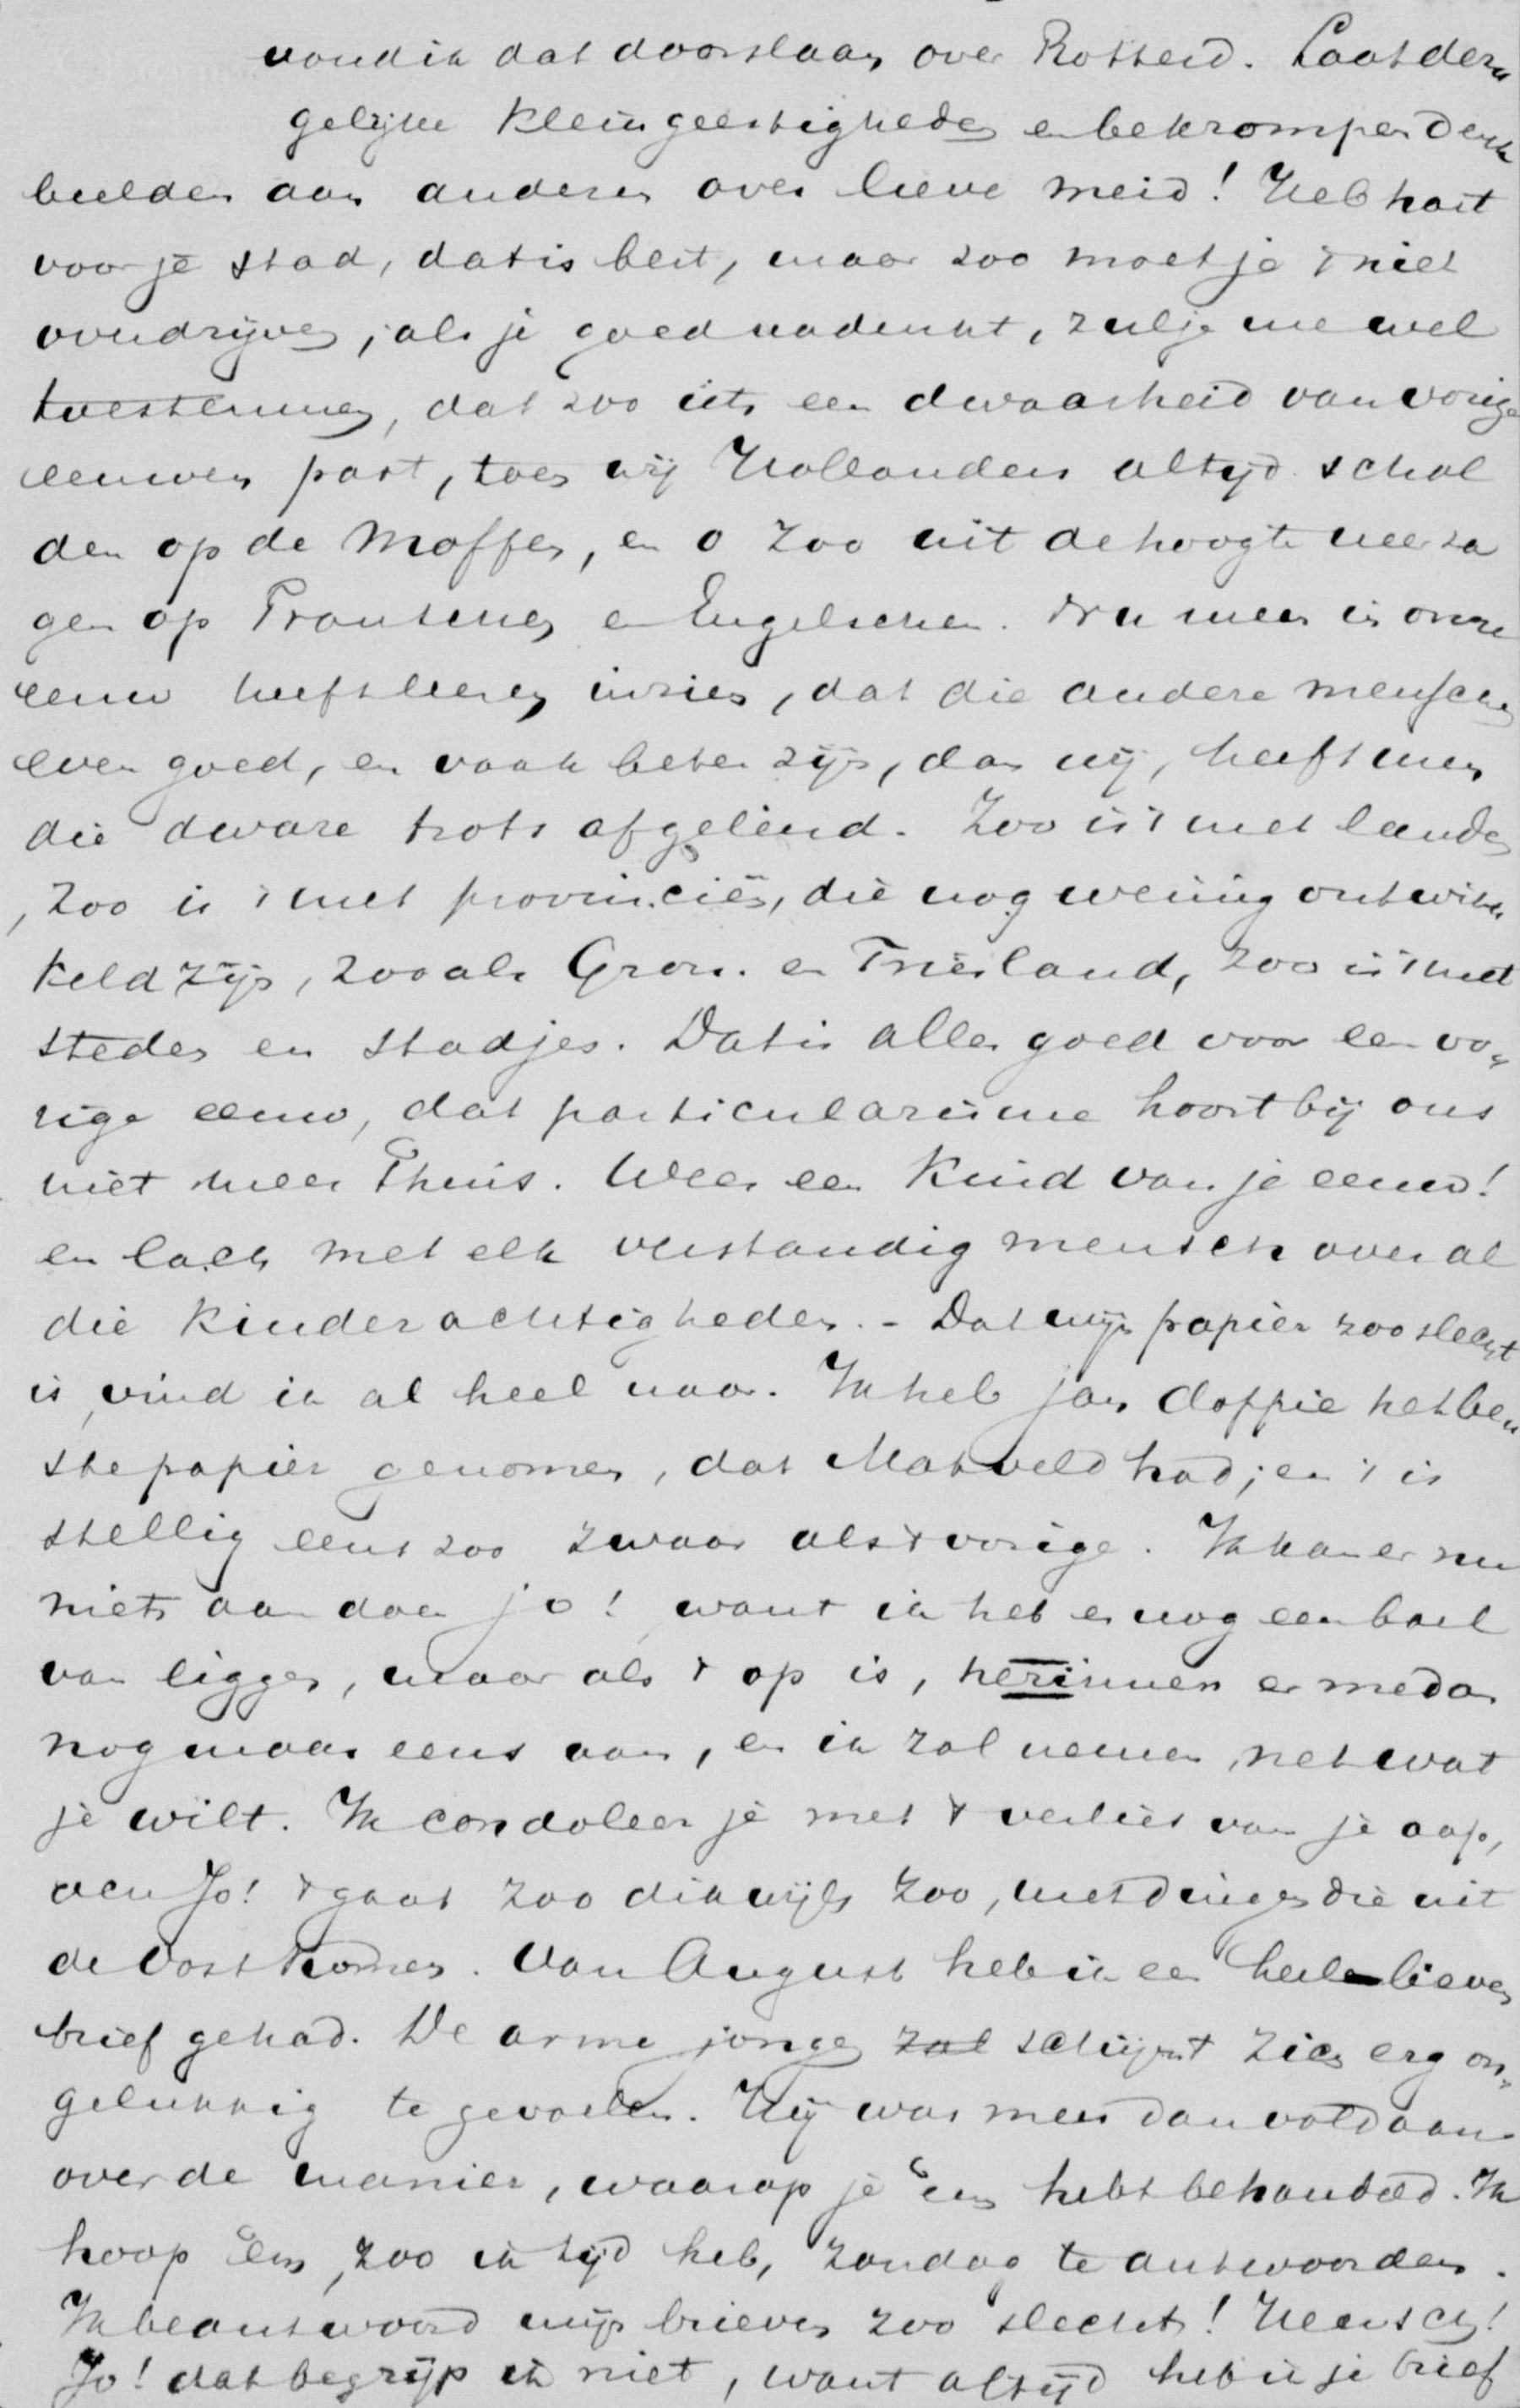 vond ik dat doorslaan over Rotterd. Laat der„
gelijke kleingeestigheden en bekrompen denk
beelden aan anderen over lieve meid! Heb hart
voor je stad, dat is best, maar zoo moet je 't niet
overdrijven; als je goed nadenkt, zul je me wel
toestemmen, dat zoo iets een dwaasheid van vorige
eeuwen past, toen wij Hollanders altijd schol
den op de Moffen, en o zoo uit de hoogte neerza
gen op Franschen en Engelschen. Nu men in onze
eeuw heeft leeren inzien, dat die andere menschen
even goed, en vaak beter zijn, dan wij, heeft men
die dwaze trots afgeleerd. Zoo is 't met landen
, zoo is 't met provinciën, die nog weinig ontwik„
keld zijn, zooals Gron. en Friesland, zoo is 't met
steden en stadjes. Dat is alles goed voor een vo„
rige eeuw, dat particularisme hoort bij ons
niet meer thuis. Wees een kind van je eeuw!
en lach met elk verstandig mensch over al
die kinderachtigheden. - Dat mijn papier zoo slecht
is, vind ik al heel naar. Ik heb jan doppie het be„
ste papier genomen, dat Matveld had; en 't is
stellig eens zoo zwaar als 't vorige. Ik kan er nu
niets aan doen jo! want ik heb er nog een boel
van liggen, maar als 't op is, herinner er me dan
nog maar eens aan, en ik zal nemen, net wat
je wilt. Ik condoleer je met 't verlies van je aap,
ven Jo! 't gaat zoo dikwijls zoo, met dingen die uit
de Oost komen. Van August heb ik een heele lieven
brief gehad. De arme jongen zal schijnt zich erg on„
gelukkig te gevoelen. Hij was meer dan voldaan
over de manier, waarop je em hebt behandeld. Ik
hoop em, zoo ik tijd heb, Zondag te antwoorden.
Ik beantwoord mijn brieven zoo slecht! Mensch!
Jo! dat begrijp ik niet, want altijd heb ik je brief